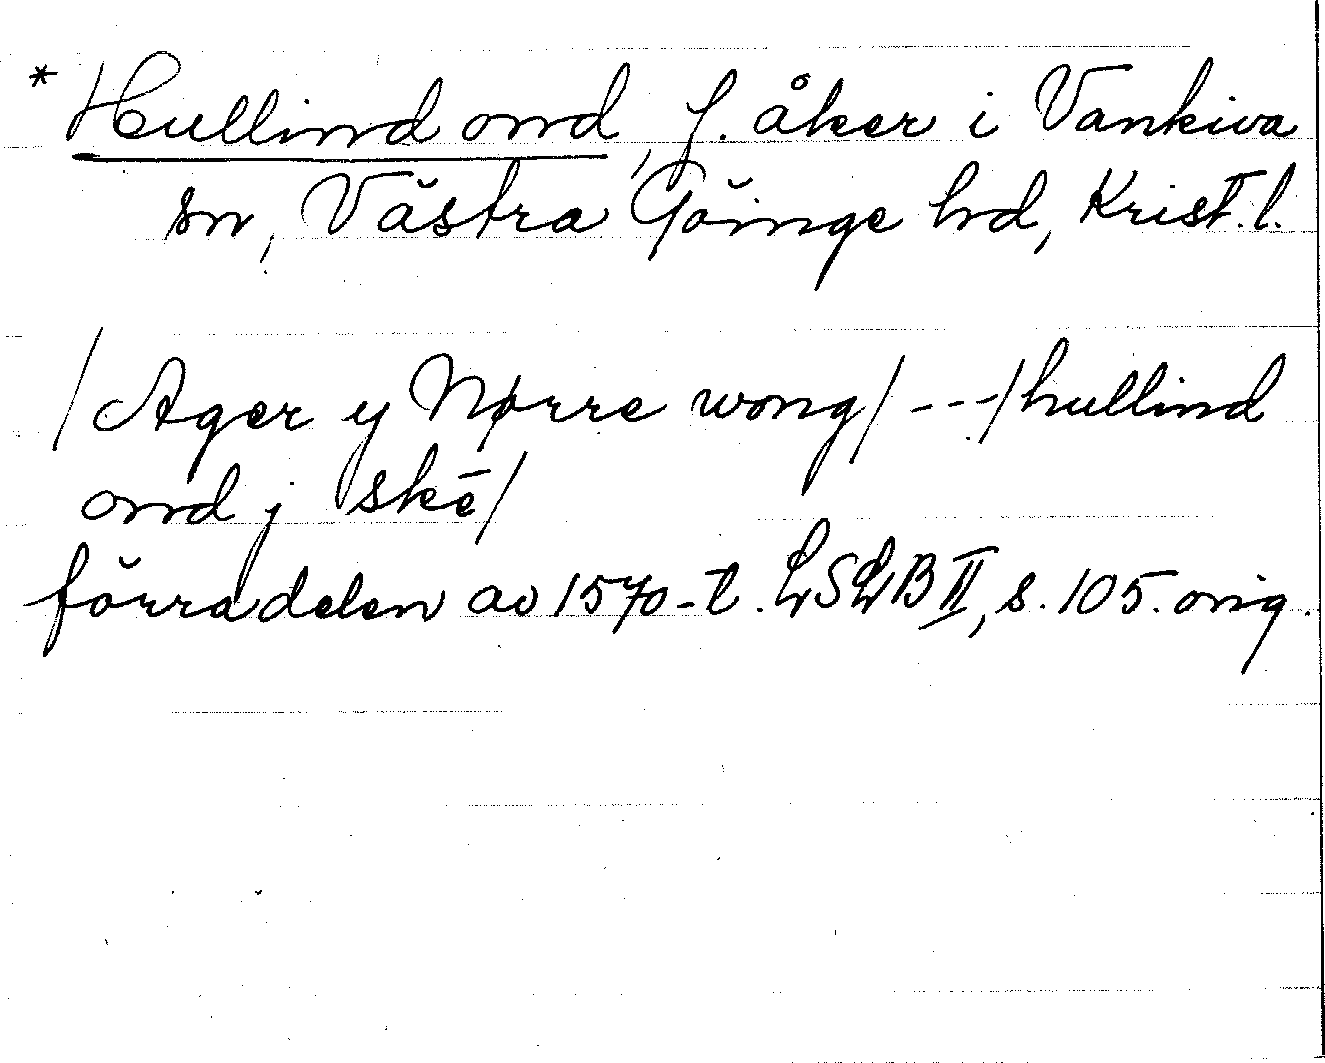 * Hullind ond, f. åker i Vankiva
sn, Västra Göinge hd, Krist. l.
/Ager y Nørre wong/---/hullind
ond j skē/
förra delen av 1570-t. LSLB II, s. 105. orig.